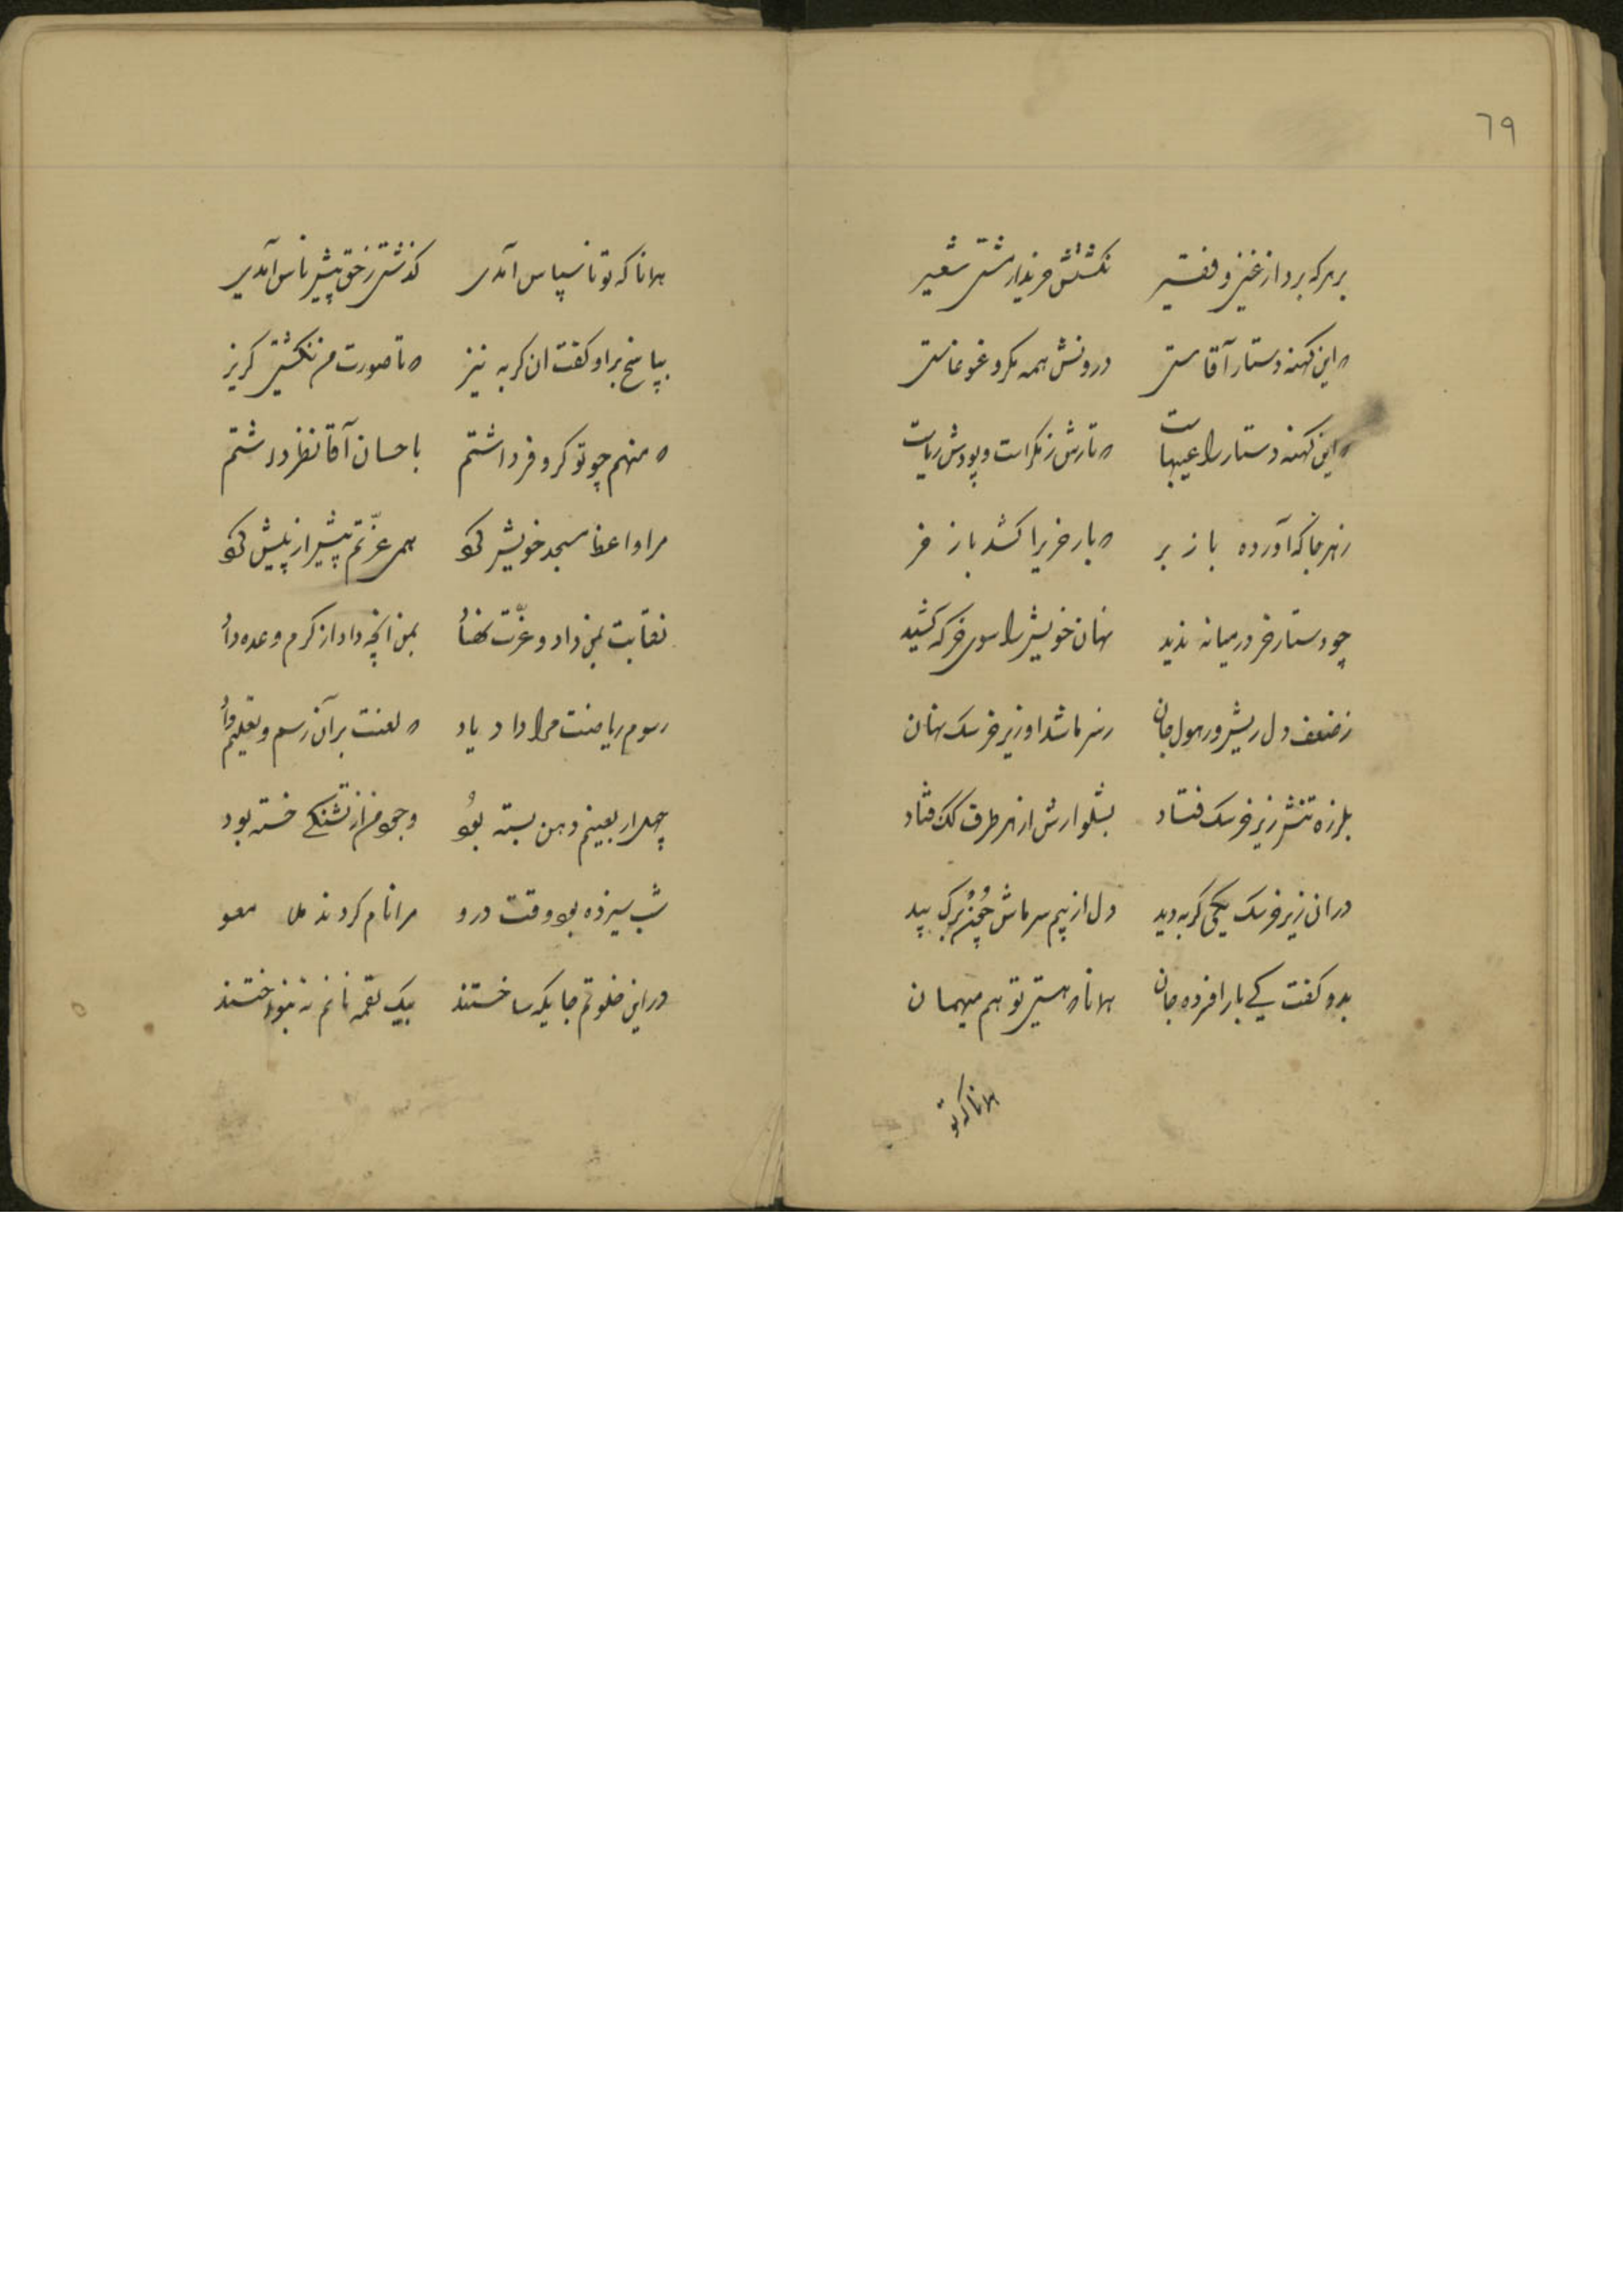 ٦٩
بر هر که برد از غنی و فقیر نکشتش خریدار مشتی شعیر
که این کهنه دستار آقاستی درونش همه مکر و غوغاستی
که این کهنه دستار را عیبهاست که تارش ز مکر است و پودش ریاست
ز هر جا که آورده باز بر که بار خری را کشد باز خر
چو دستار خر در میانه ندید نهان خویش را سوی خرکه کشید
ز ضعف دل ریش و ز هول جان ز سرما شد او زیر خرسک نهان
بلرزه تنش زیر خرسک فتاد بشلوارش از هر طرف کک فتاد
در ان زیر خرسک یکی کربه دید دل از بیم سرماش چون برک بید
بدو کفت کی یار افزده جان همانا که هستی تو هم میهمان
همانا که تو
همانا که تو ناسپاس آمدی کذشتی ز حق پیش ناس آمدی
بپاسخ بر او کفت ان کربه نیز که تا صورت من نکشتی کریز
که منهم چو تو کر و فر داشتم باحسان آقا نظر داشتم
مرا واعظ مسجد خویش کرد همی عزتم بیش از پیش کرد
نقابت بمن داد و عزت نهاد بمن انچه داد از کرم وعده داد
رسوم ریاضت مرا داد یاد که لعنت بر آن رسم و تعلیم باد
چهل اربعینم دهن بسته بود وجود من از تشنکی خسته بود
شب سیزده بود وقت درو مرا نام کردند ملا معو
در این خلوتم جایکه ساختند بیک لقمه نانم نه بنواختند